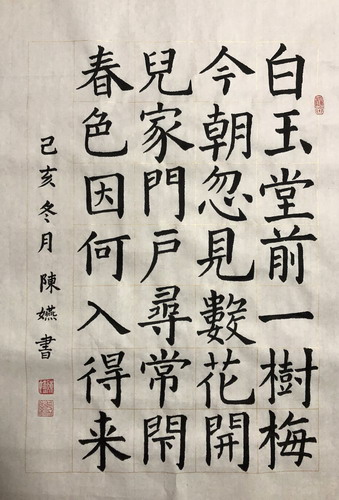 白玉堂前一樹梅
今朝忽見數花開
兒家門戶尋常閇
春色因何入得来
己亥冬月陳嬿書